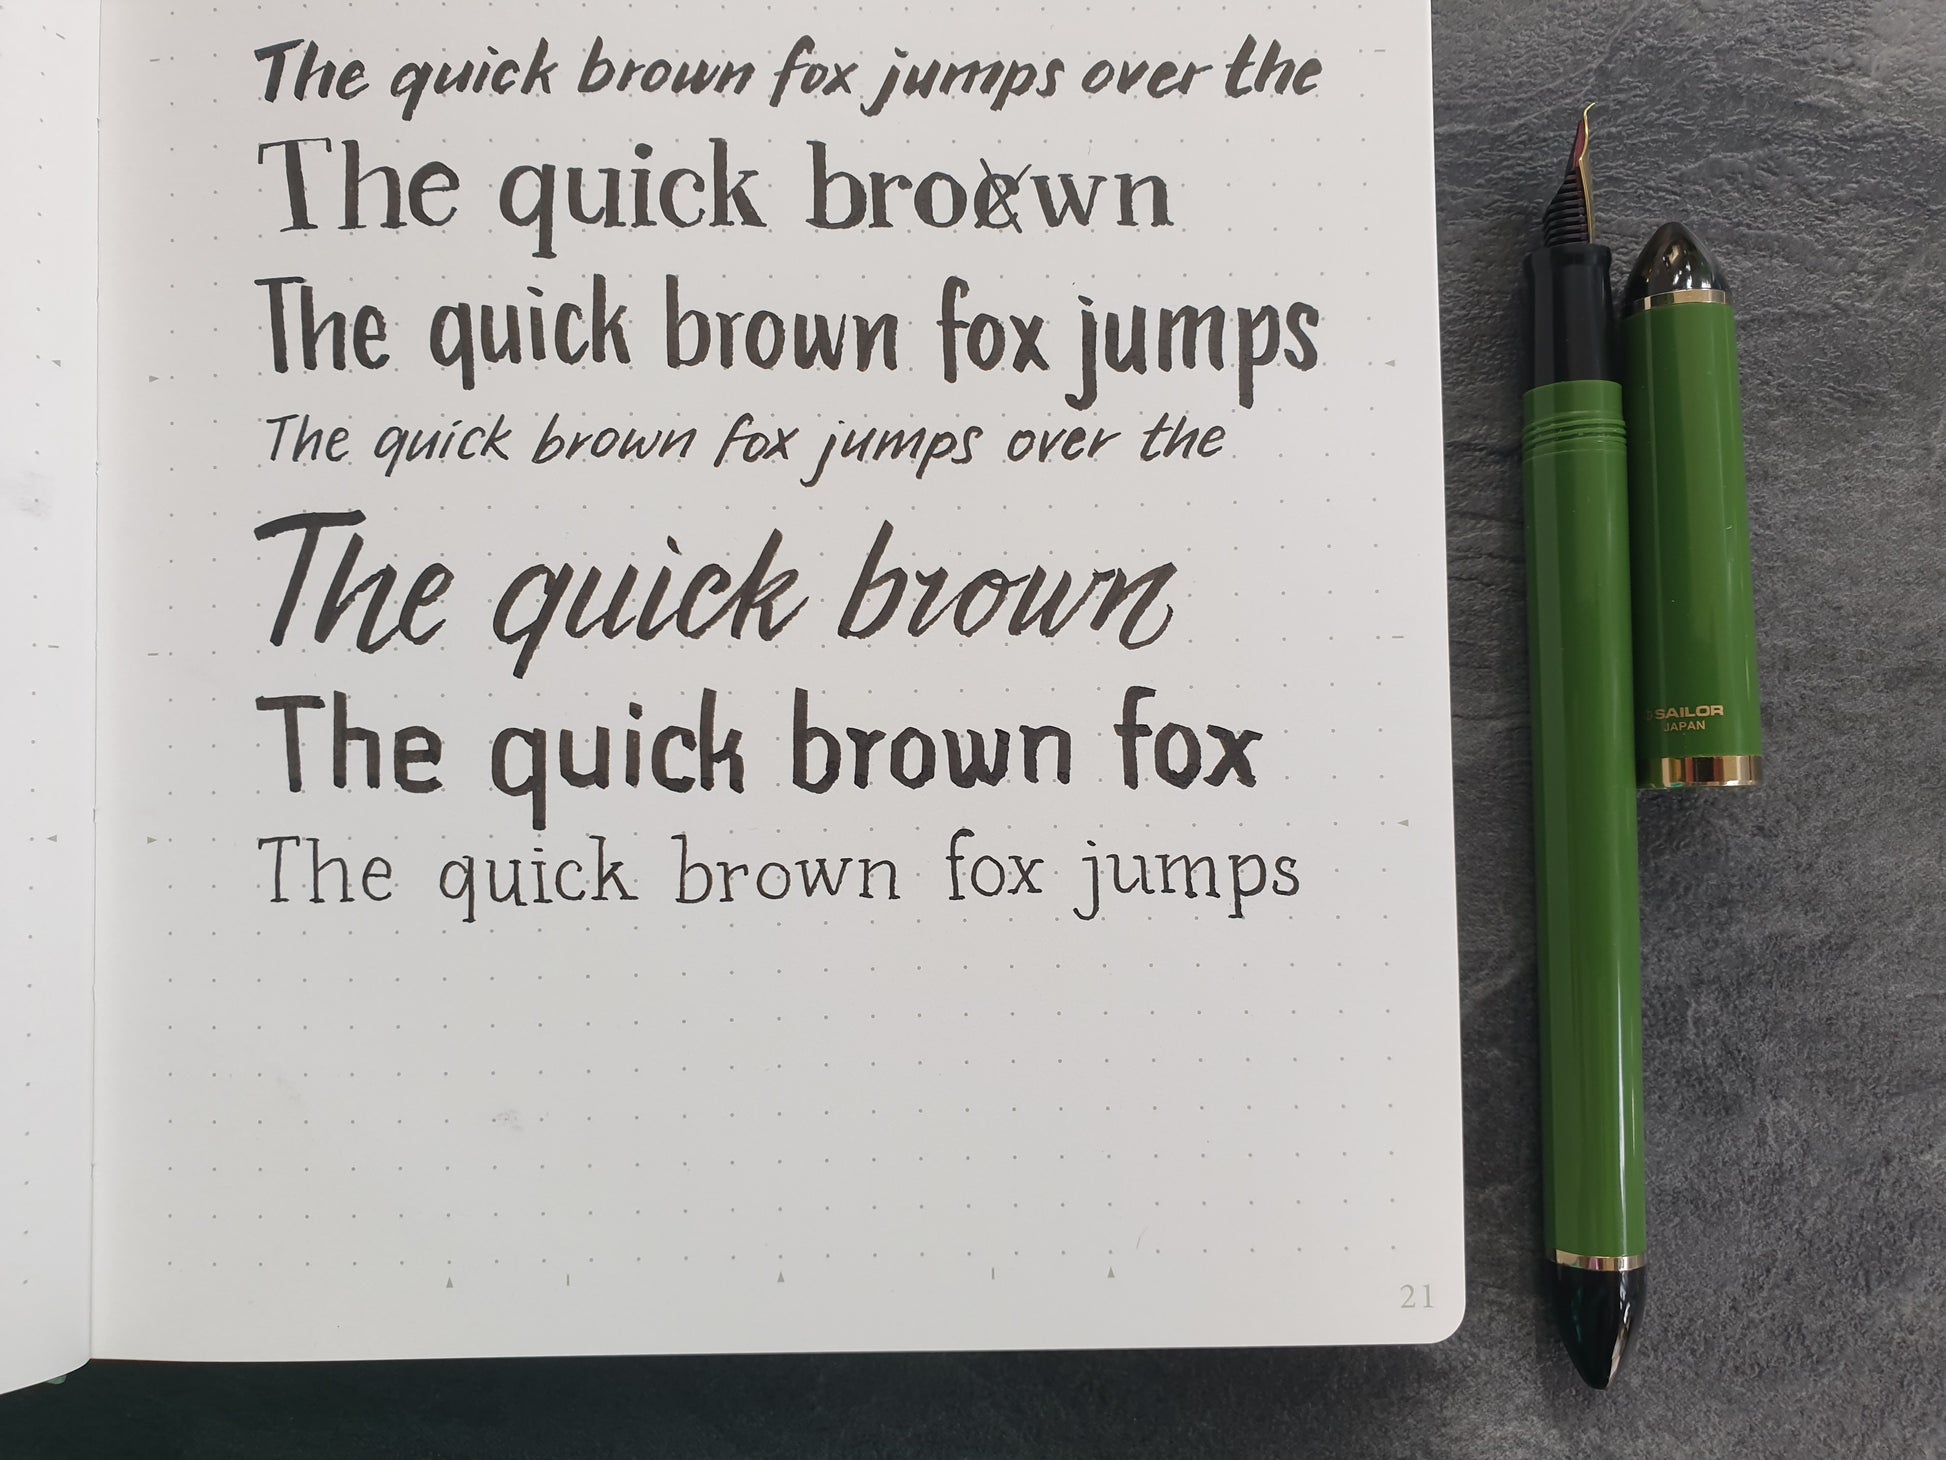 The quick brown fox jumps over the
The quick broewn
The quick brown fox jumps
The quick brown fox jumps over the
The quick brown
The quick brown fox
The quick brown fox jumps
21
SAILOR
JAPAN